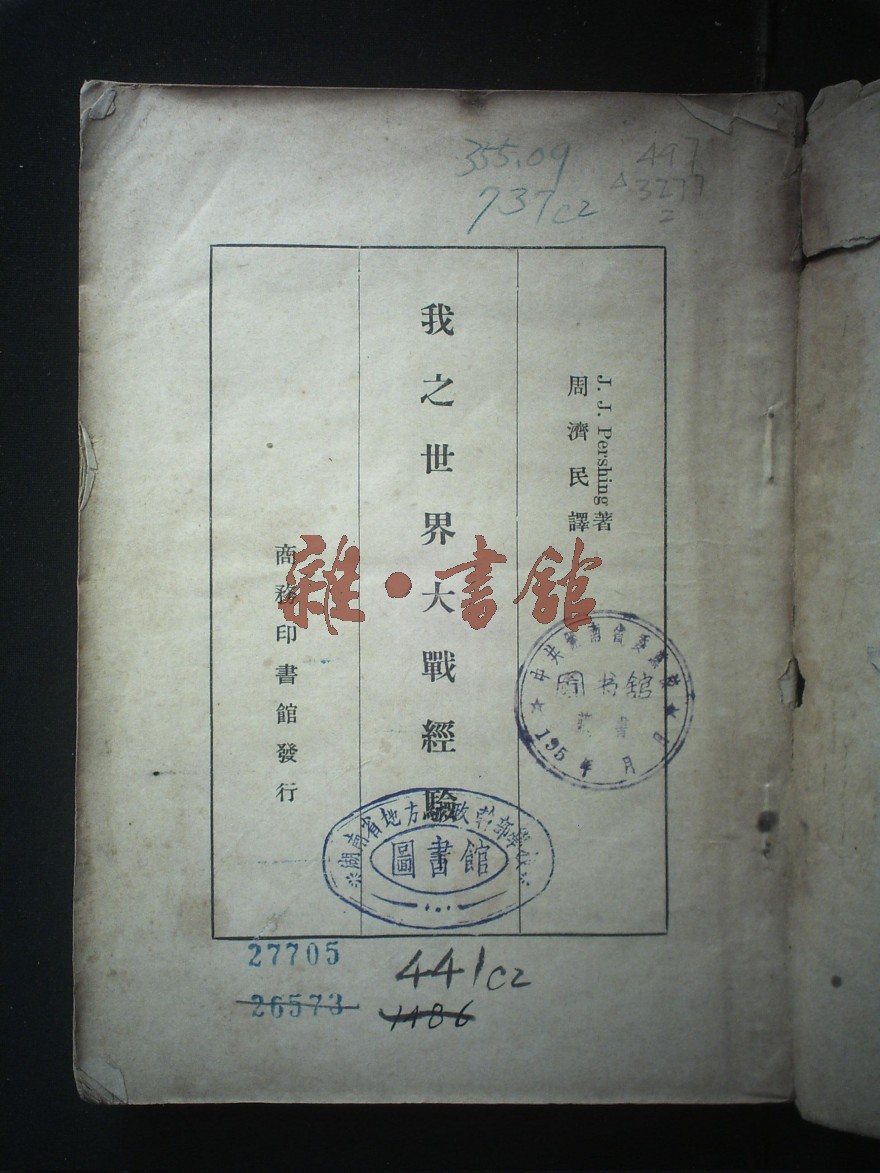 355.09
737c2
497
3277
2
J. J. Pershing著
周濟民譯
我之世界大戰經驗
商務印書館發行
雜·書館
中共
图书馆
藏書
195 年 月 日
湖南省地方行政幹部學校
圖書館
27705
26573
441c2
1486